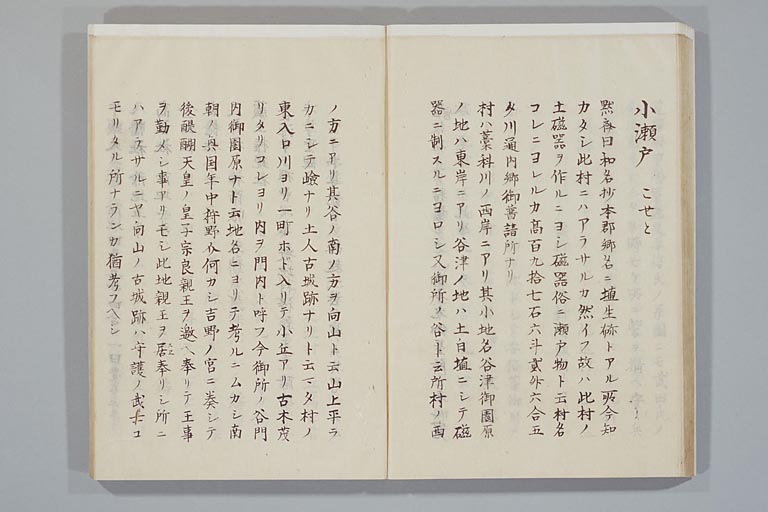 小瀬戸 こせと
黙斎曰和名抄本郡郷名ニ埴生郷トアル所今知
カタシ此村ニハアラサルカ然イフ故ハ此村ノ
土磁器ヲ作ルニヨシ磁器俗ニ瀬戸物ト云村名
コレニヨレルカ高百九拾七石六斗貳升六合五
夕川通内郷御普請所ナリ
村ハ藁科川ノ西岸ニアリ其小地名谷津御園原
ノ地ハ東岸ニアリ谷津ノ地ハ土白埴ニシテ磁
器ニ制スルニヨロシ又御所ノ谷ト云所村ノ西
ノ方ニアリ其谷ノ南ノ方ヲ向山ト云山上平ラ
カニシテ嶮ナリ土人古城跡ナリト云マタ村ノ
東入口川ヨリ一町ホド入リテ小丘アリ古木茂
リタリコレヨリ内ヲ門内ト呼フ今御所ノ谷門
内御園原ナト云地名ニヨリテ考ルニムカシ南
朝ノ興国年中狩野介何カシ吉野ノ宮ニ奏シテ
後醍醐天皇ノ皇子宗良親王ヲ邀ヘ奉リテ王事
ヲ勤メシ事アリモシ此地親王ヲ居奉リシ所ニ
ハアラサルニヤ向山ノ古城跡ハ守護ノ武士コ
モリタル所ナランカ猶考フヘシ